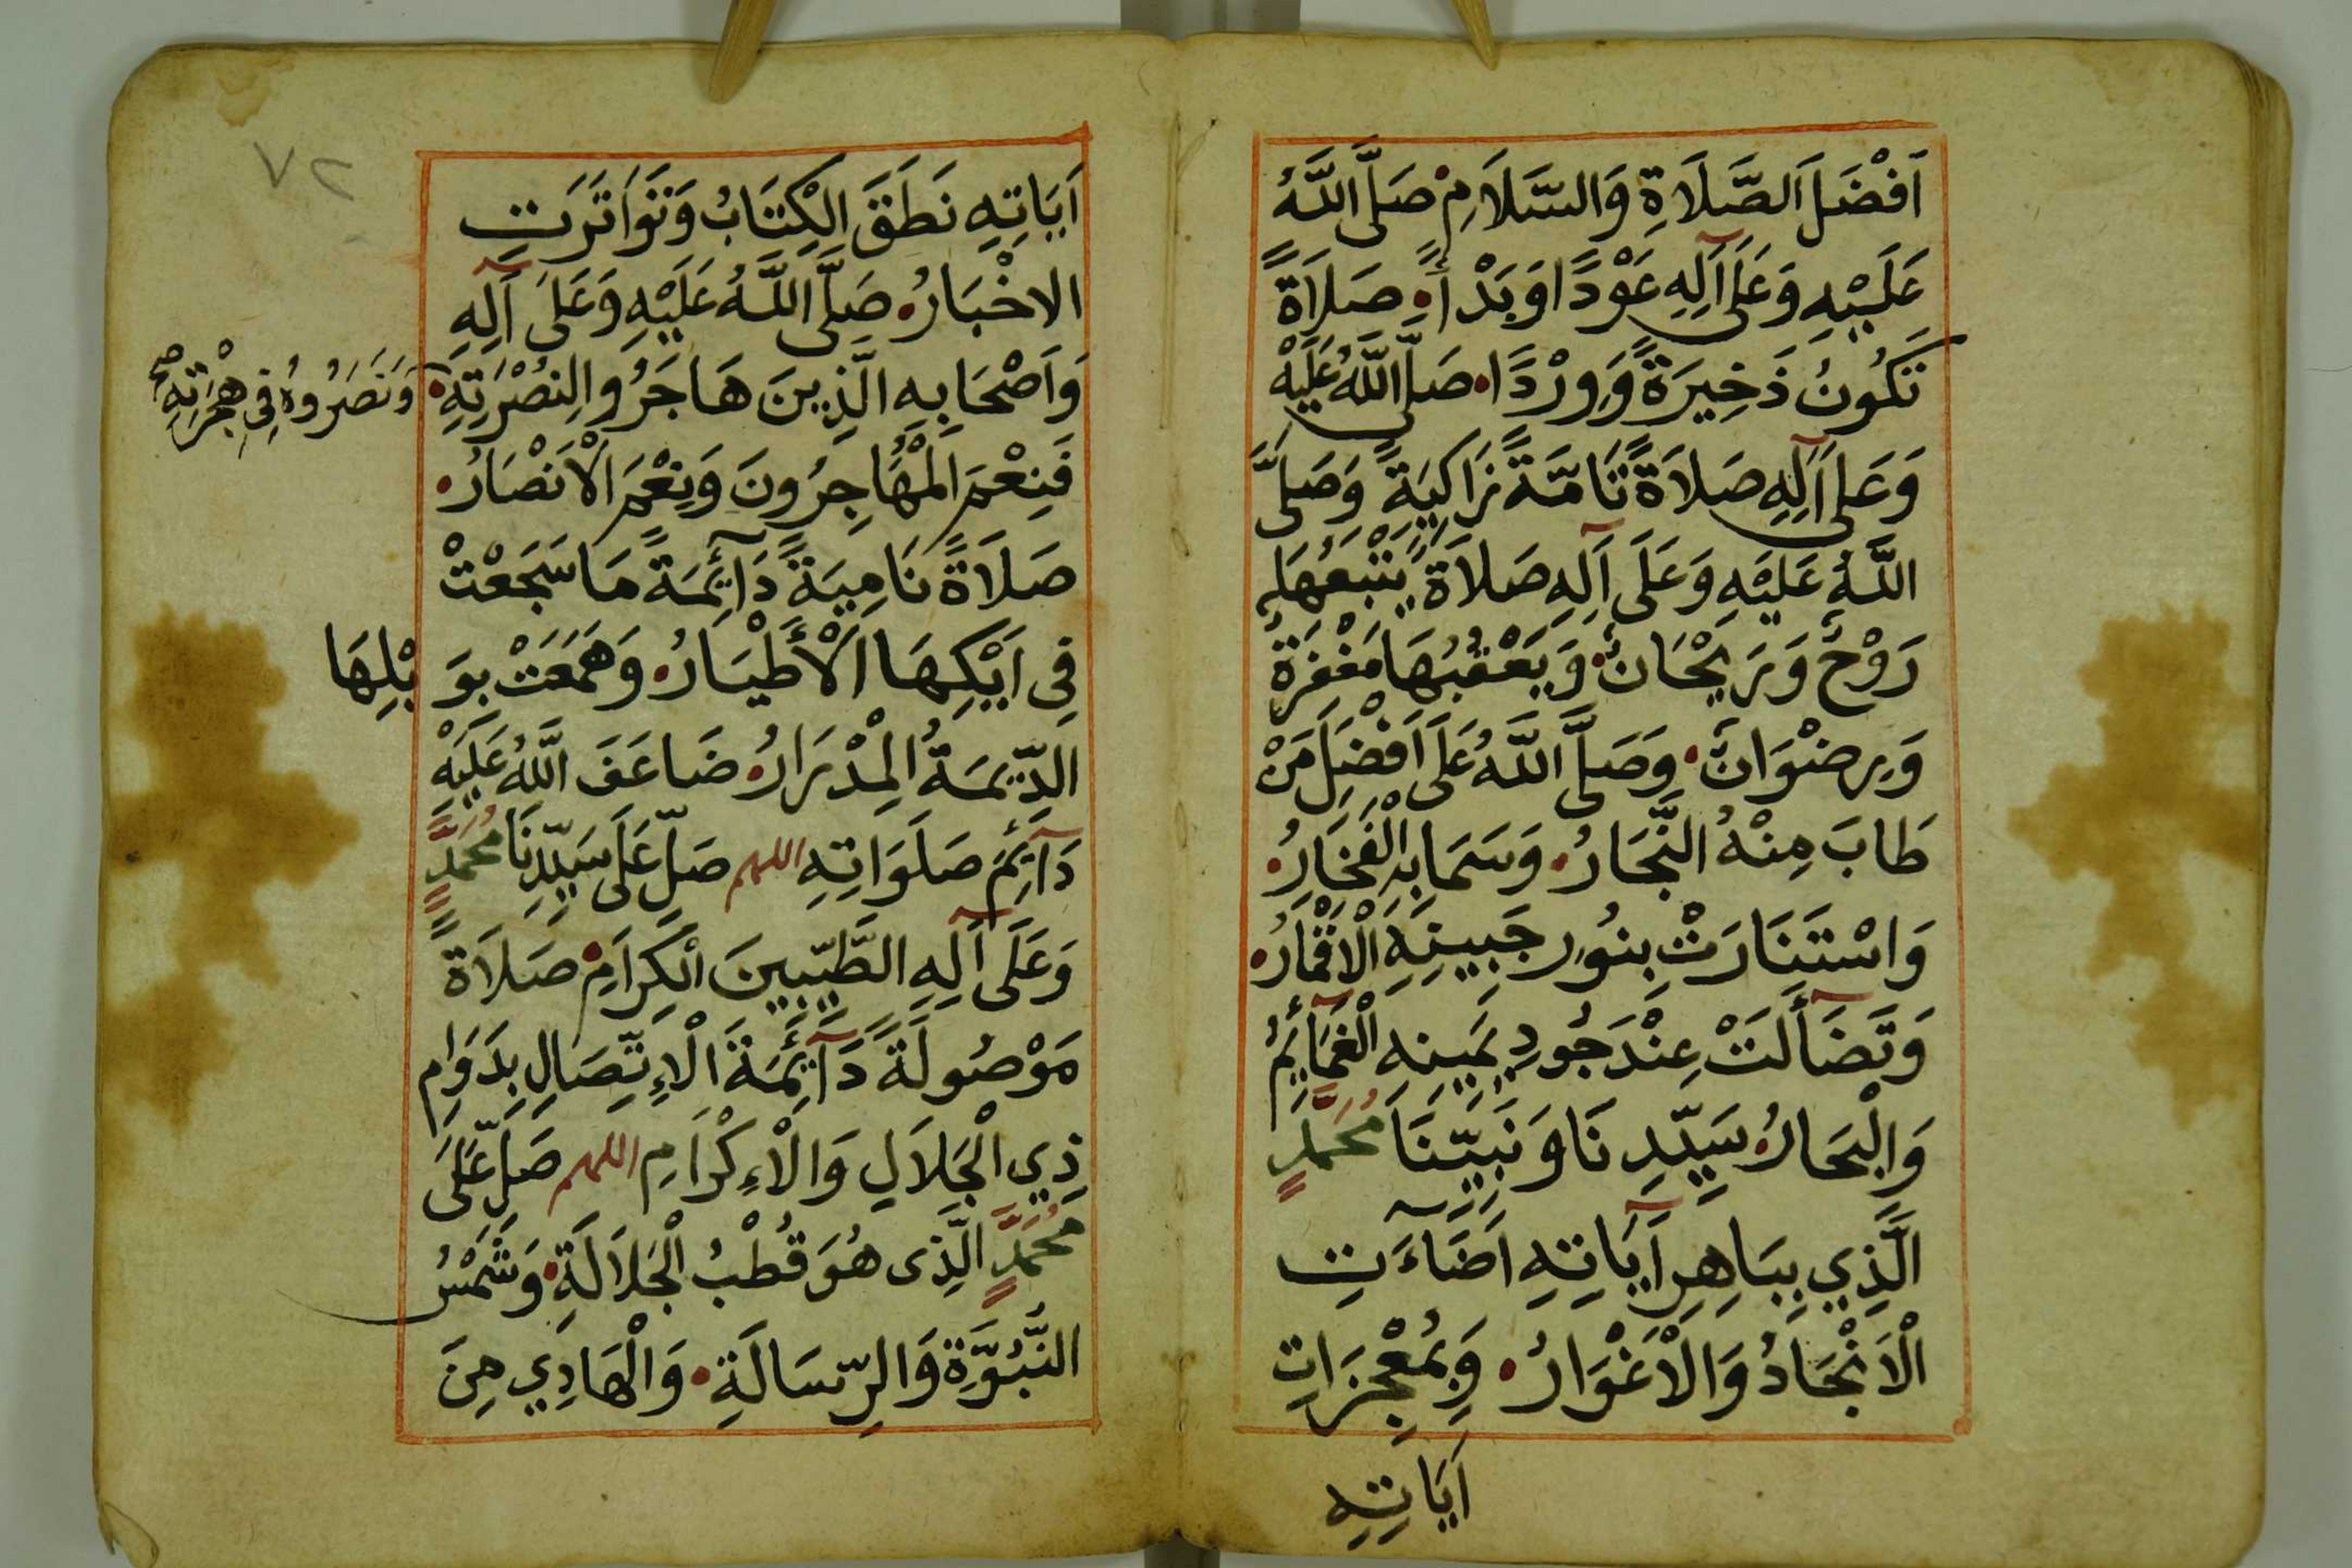 اَفْضَلَ الصَّلَاةِ وَالسَّلَامِ صَلَّى اللَّهُ
عَلَيْهِ وَعَلَى آلِهِ عَوْدًا وَبَدْأً صَلَاةً
تَكُونُ ذَخِيرَةً وَوِرْدًا صَلَّى اللَّهُ عَلَيْهِ
وَعَلَى آلِهِ صَلَاةً تَامَّةً زَاكِيَةً وَصَلَّى
اللَّهُ عَلَيْهِ وَعَلَى آلِهِ صَلَاةً يَتْبَعُهَا
رَوْحٌ وَرَيْحَانٌ وَيَعْقُبُهَا مَغْفِرَةٌ
وَرِضْوَانٌ وَصَلَّى اللَّهُ عَلَى اَفْضَلِ مَنْ
طَابَ مِنْهُ النِّجَارُ وَسَمَا بِهِ الْفَخَارُ
وَاسْتَنَارَتْ بِنُورِ جَبِينِهِ الْاَقْمَارُ
وَتَضَآأَلَتْ عِنْدَ جُودِ يَمِينِهِ الْغَمَآئِمُ
وَالْبِحَارُ سَيِّدِنَا وَنَبِيِّنَا مُحَمَّدٍ
الَّذِي بِبَاهِرِ آيَاتِهِ اَضَآءَتِ
الْاَنْجَادُ وَالْاَغْوَارُ وَبِمُعْجِزَاتِ
اَيَاتِهِ
٧٢
اَيَاتِهِ نَطَقَ الْكِتَابُ وَتَوَاتَرَتِ
الاخْبَارُ صَلَّى اللَّهُ عَلَيْهِ وَعَلَى آلِهِ
وَاَصْحَابِهِ الَّذِينَ هَاجَرُوا لِنُصْرَتِهِ
وَنَصَرُوهُ فِي هِجْرَتِهِ صح
فَنِعْمَ الْمُهَاجِرُونَ وَنِعْمَ الْاَنْصَارُ
صَلَاةً نَامِيَةً دَآئِمَةً مَا سَجَعْتْ
فِي اَيْكِهَا الْأَطْيَارُ وَهَمَعَتْ بِوَبْلِهَا
الدِّيمَةُ الْمِدْرَارُ ضَاعَفَ اللَّهُ عَلَيْهِ
دَآئِمَ صَلَوَاتِهِ اللهم صَلِّ عَلَى سَيِّدِنَا مُحَمَّدٍ
وَعَلَى آلِهِ الطَّيِّبِينَ الْكِرَامِ صَلَاةً
مَوْصُولَةً دَآئِمَةَ الْاِتِّصَالِ بِدَوَامِ
ذِي الْجَلَالِ وَالْاِكْرَامِ اللهم صَلِّ عَلَى
مُحَمَّدٍ الَّذِى هُوَ قُطْبُ الْجَلَالَةِ وَشَمْسُ
النُّبُوَّةِ وَالرِّسَالَةِ وَالْهَادِي مِنَ